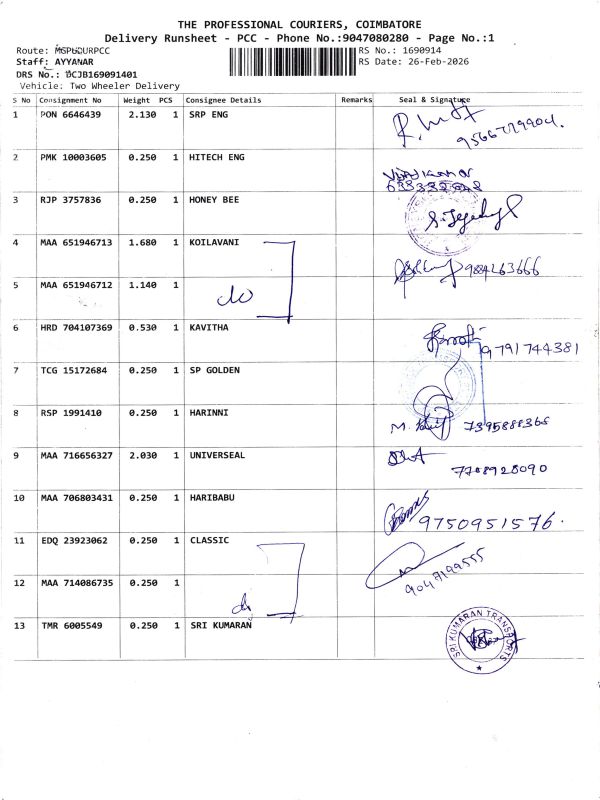 THE PROFESSIONAL COURIERS, COIMBATORE
Delivery Runsheet - PCC - Phone No.:9047080280 - Page No.:1
Route: MGPUDURPCC RS No.: 1690914
Staff: AYYANAR RS Date: 26-Feb-2026
DRS No.: DCJB169091401
Vehicle: Two Wheeler Delivery
S No Consignment No Weight PCS Consignee Details Remarks Seal & Signature
1 PON 6646439 2.130 1 SRP ENG
2 PMK 10003605 0.250 1 HITECH ENG
3 RJP 3757836 0.250 1 HONEY BEE
4 MAA 651946713 1.680 1 KOILAVANI 9884263666
5 MAA 651946712 1.140 1 do
6 HRD 704107369 0.530 1 KAVITHA 9791744381
7 TCG 15172684 0.250 1 SP GOLDEN
8 RSP 1991410 0.250 1 HARINNI 7395888368
9 MAA 716656327 2.030 1 UNIVERSEAL 7708928090
10 MAA 706803431 0.250 1 HARIBABU 9750951576.
11 EDQ 23923062 0.250 1 CLASSIC 9047199555
12 MAA 714086735 0.250 1 do
13 TMR 6005549 0.250 1 SRI KUMARAN SRI KUMARAN TRANSPORTS